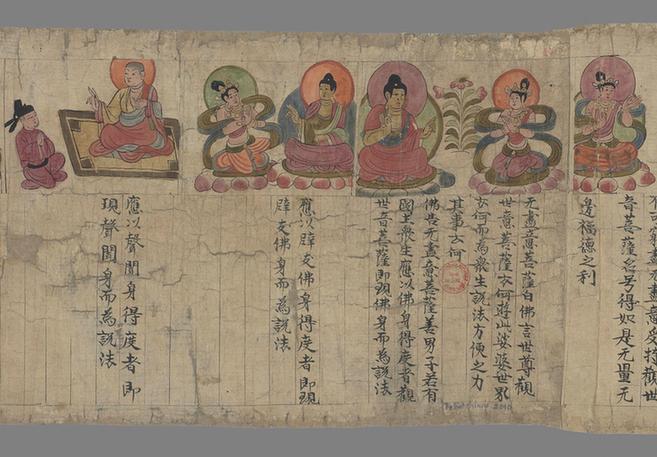 盡无盡意受持觀世
音菩薩名号得如是无量无
邊福德之利
无盡意菩薩白佛言世尊觀
世音菩薩云何遊此娑婆世界
云何而為衆生說法方便之力
其事云何
佛告无盡意菩薩善男子若有
國土衆生應以佛身得度者觀
世音菩薩即現佛身而為說法
應以辟支佛身得度者即現
辟支佛身而為說法
應以聲聞身得度者即
現聲聞身而為說法
2010